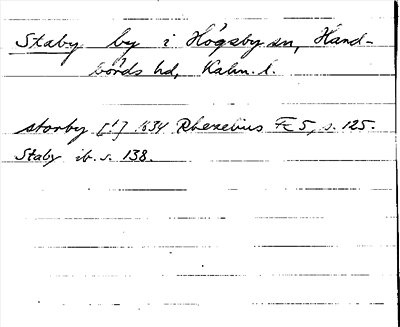 Staby by i Högsby sn, Hand-
börds hd, Kalm. l.
storby [!] 1634 Rhezelius Fc 5, s. 125.
Staby ib. s. 138.